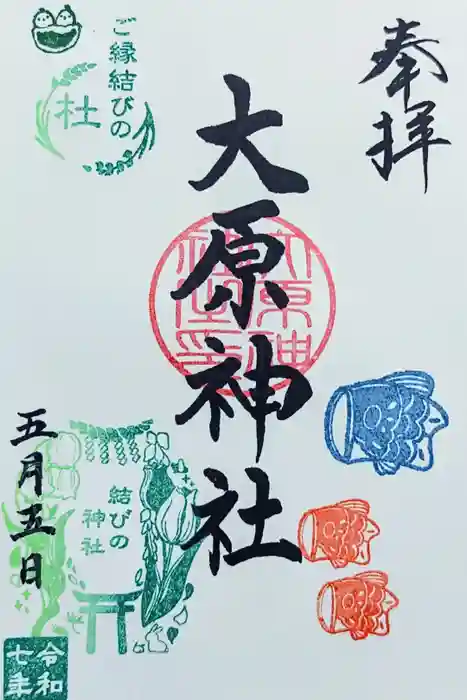 奉拝
大原神社
ご縁結びの
杜
結びの
神社
五月五日
令和
七年